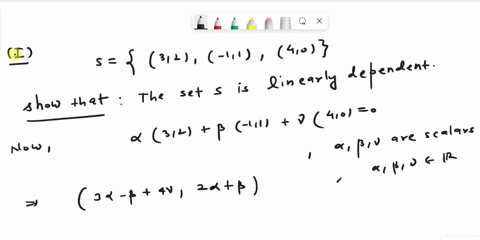 (I) S = { (3,2), (-1,1), (4,0) }
Show that : The set S is linearly dependent.
Now, α (3,2) + β (-1,1) + ν (4,0) = 0
, α, β, ν are scalars
⇒ (3α - β + 4ν, 2α + β) , α, β, ν ∈ ℝ